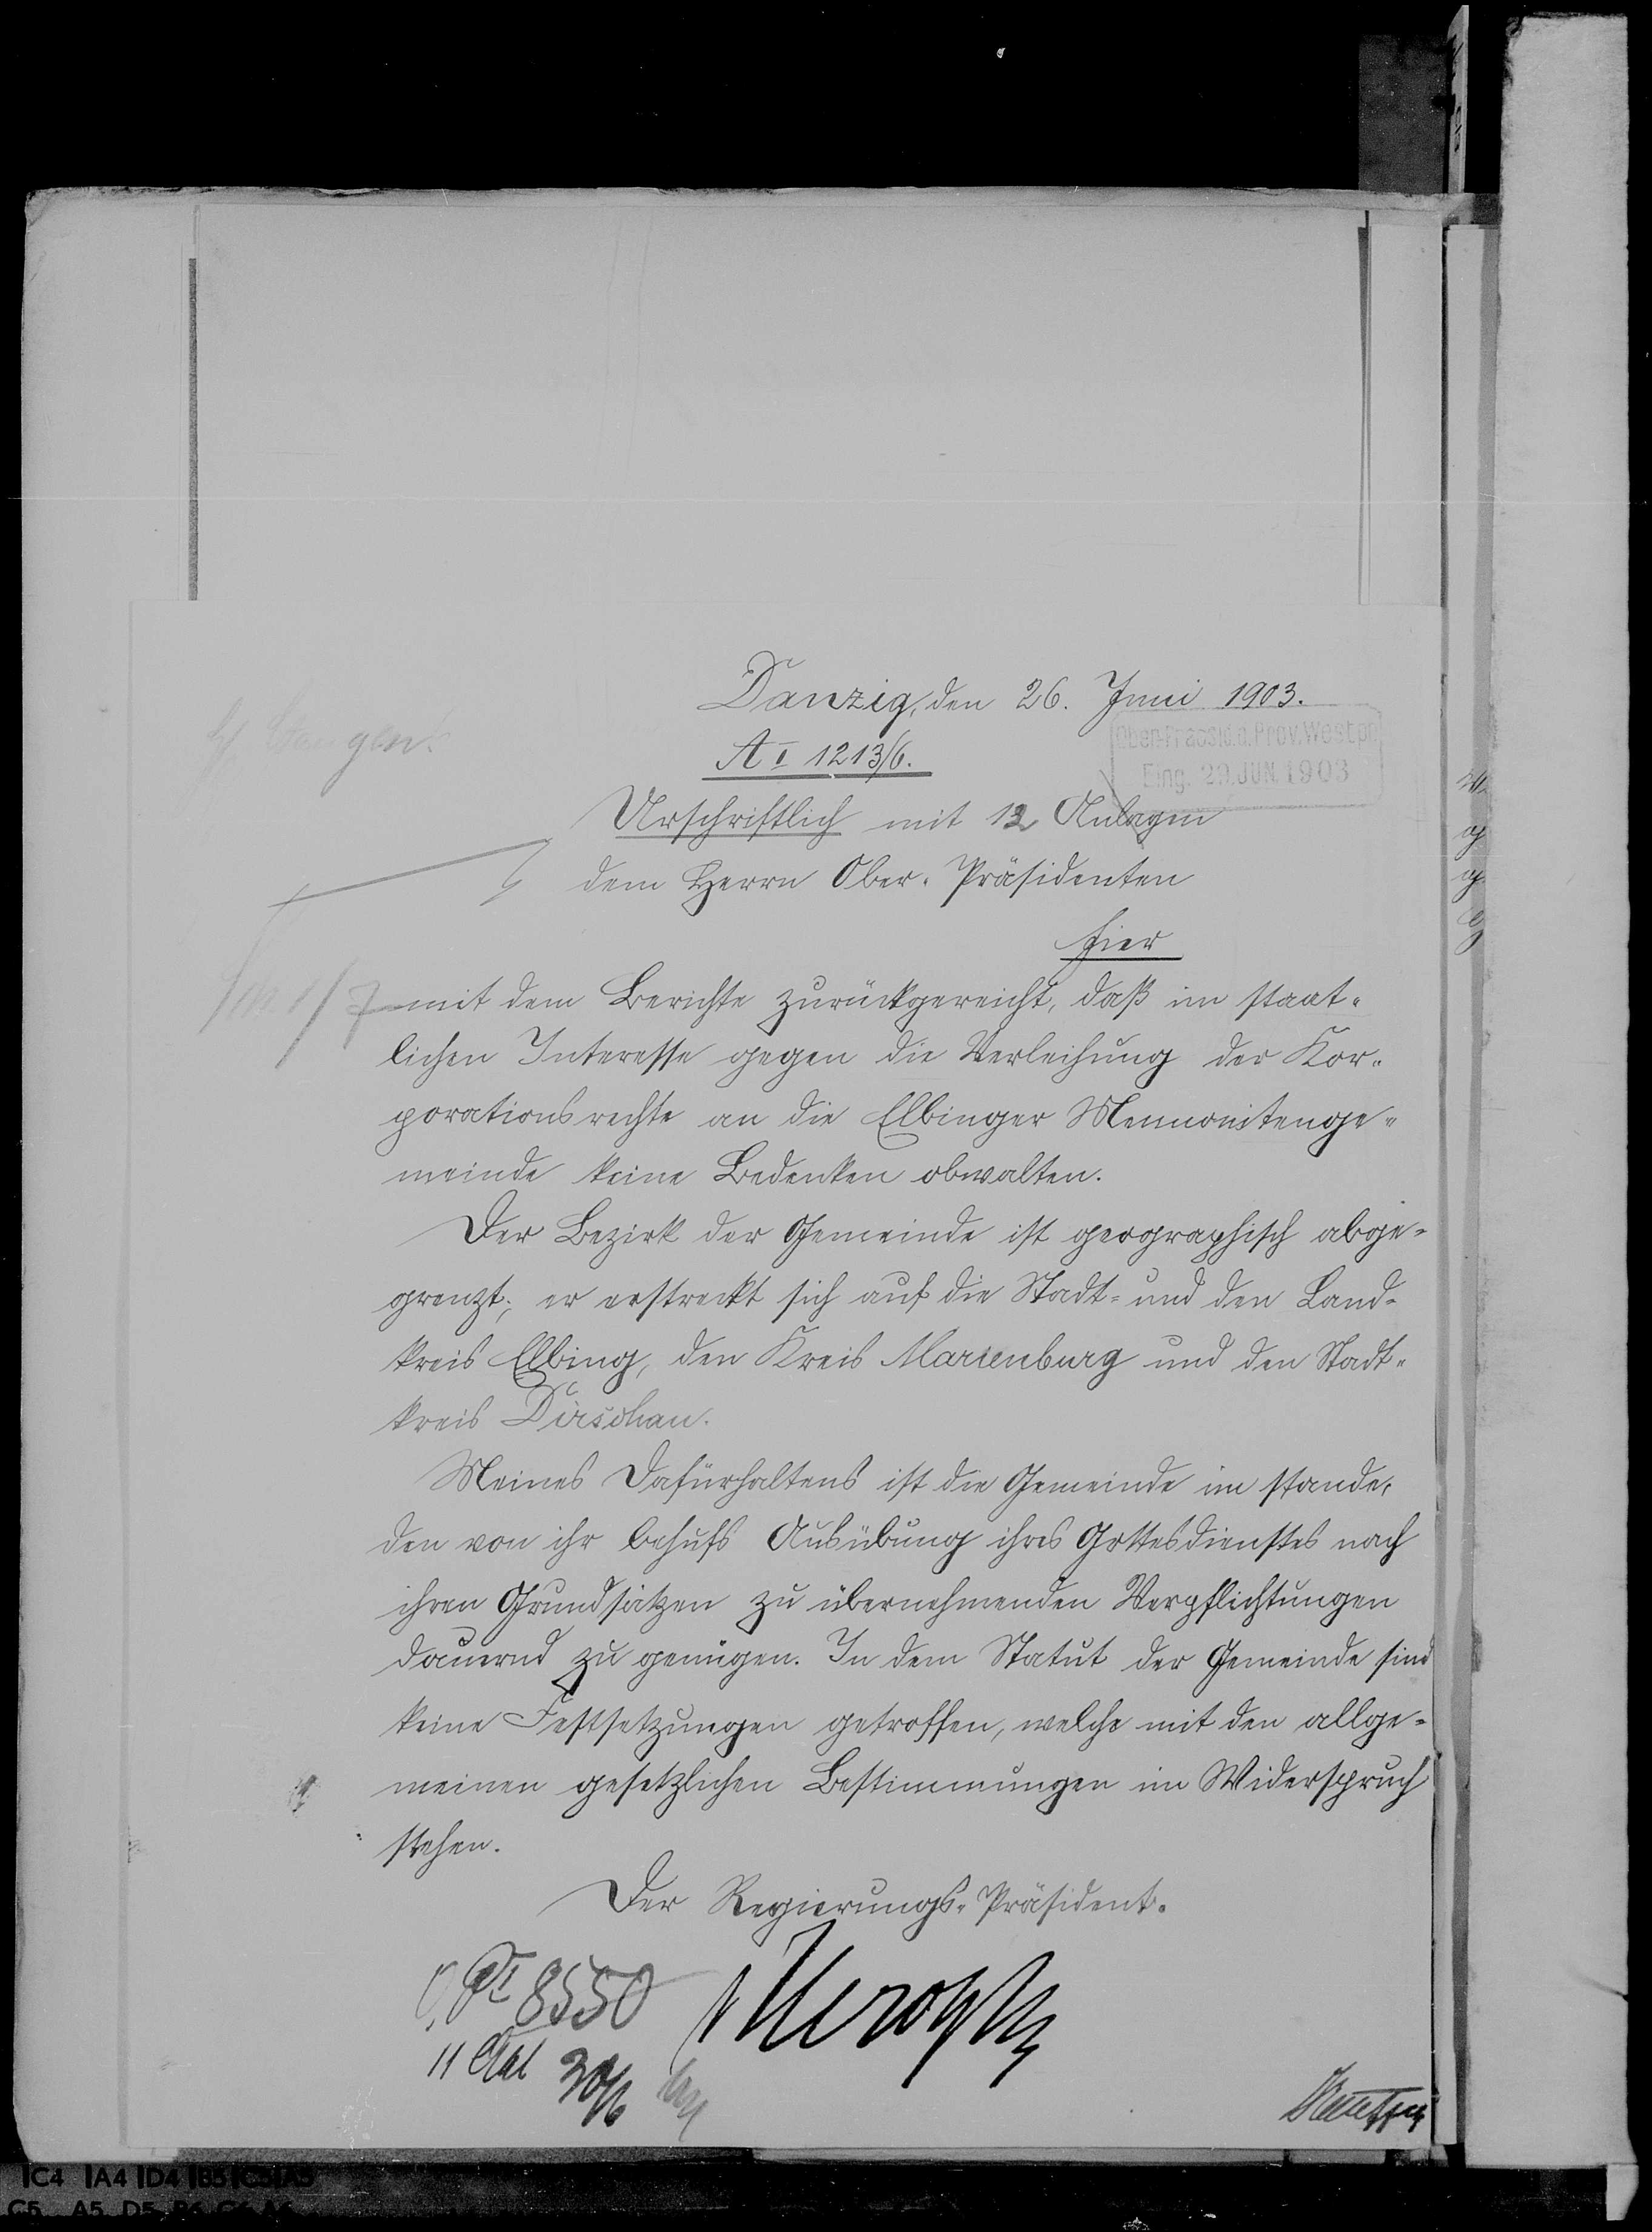 Danzig, den 26. Juni 1903.
A I 1213/6.
Ober-Praesid. d. Prov. Westpr.
Eing. 29. JUN. 1903
Urschriftlich mit 12 Anlagen
dem Herrn Ober-Präsidenten
hier
mit dem Berichte zurückgereicht, daß im staat-
lichen Interesse gegen die Verleihung der Kor-
porationsrechte an die Elbinger Mennonitenge-
meinde keine Bedenken obwalten.
Der Bezirk der Gemeinde ist geographisch abge-
grenzt; er erstreckt sich auf die Stadt- und den Land-
kreis Elbing, den Kreis Marienburg und den Stadt-
kreis Dirschau.
Meines Dafürhaltens ist die Gemeinde im stande,
den von ihr behufs Ausübung ihres Gottesdienstes nach
ihren Grundsätzen zu übernehmenden Verpflichtungen
dauernd zu genügen. In dem Statut der Gemeinde sind
keine Festsetzungen getroffen, welche mit den allge-
meinen gesetzlichen Bestimmungen im Widerspruch
stehen.
Der Regierungs-Präsident.
O.P. I 8550
30/6
IC4 IA4 ID4 IB5 IC5 IA5
C5 A5 D5 B6 C6 A6